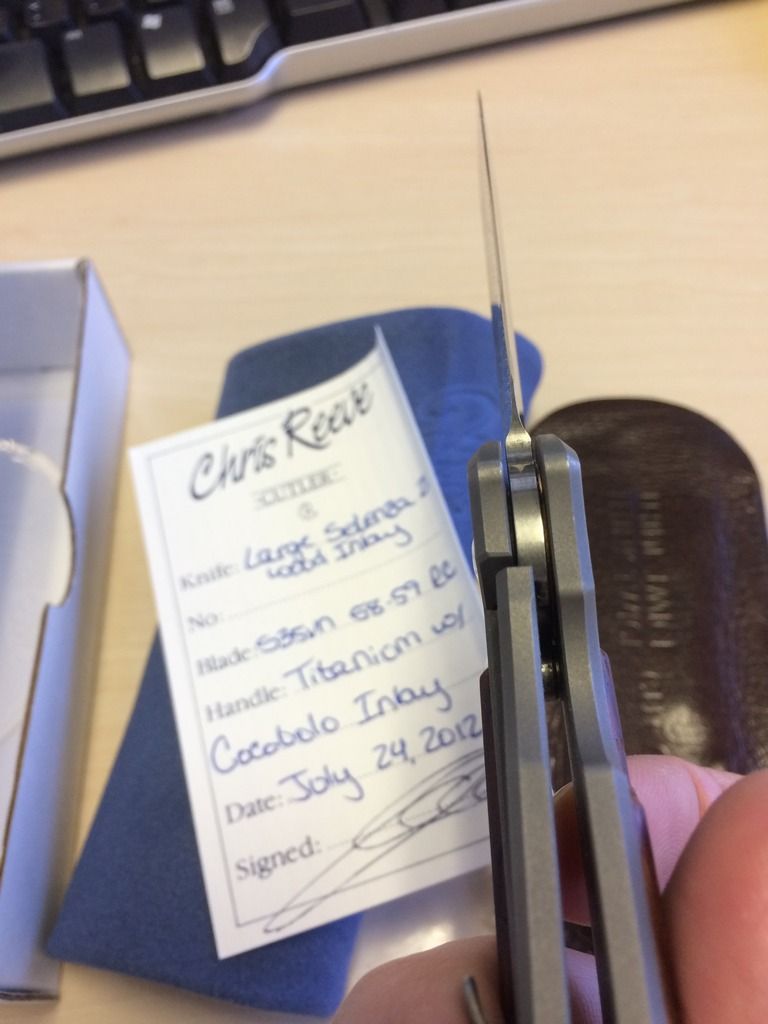 Chris Reeve
CUTLER
Knife: Large Sebenza 21
Wood Inlay
No:
Blade: S35vn 58-59 RC
Handle: Titanium w/
Cocobolo Inlay
Date: July 24, 2012
Signed: